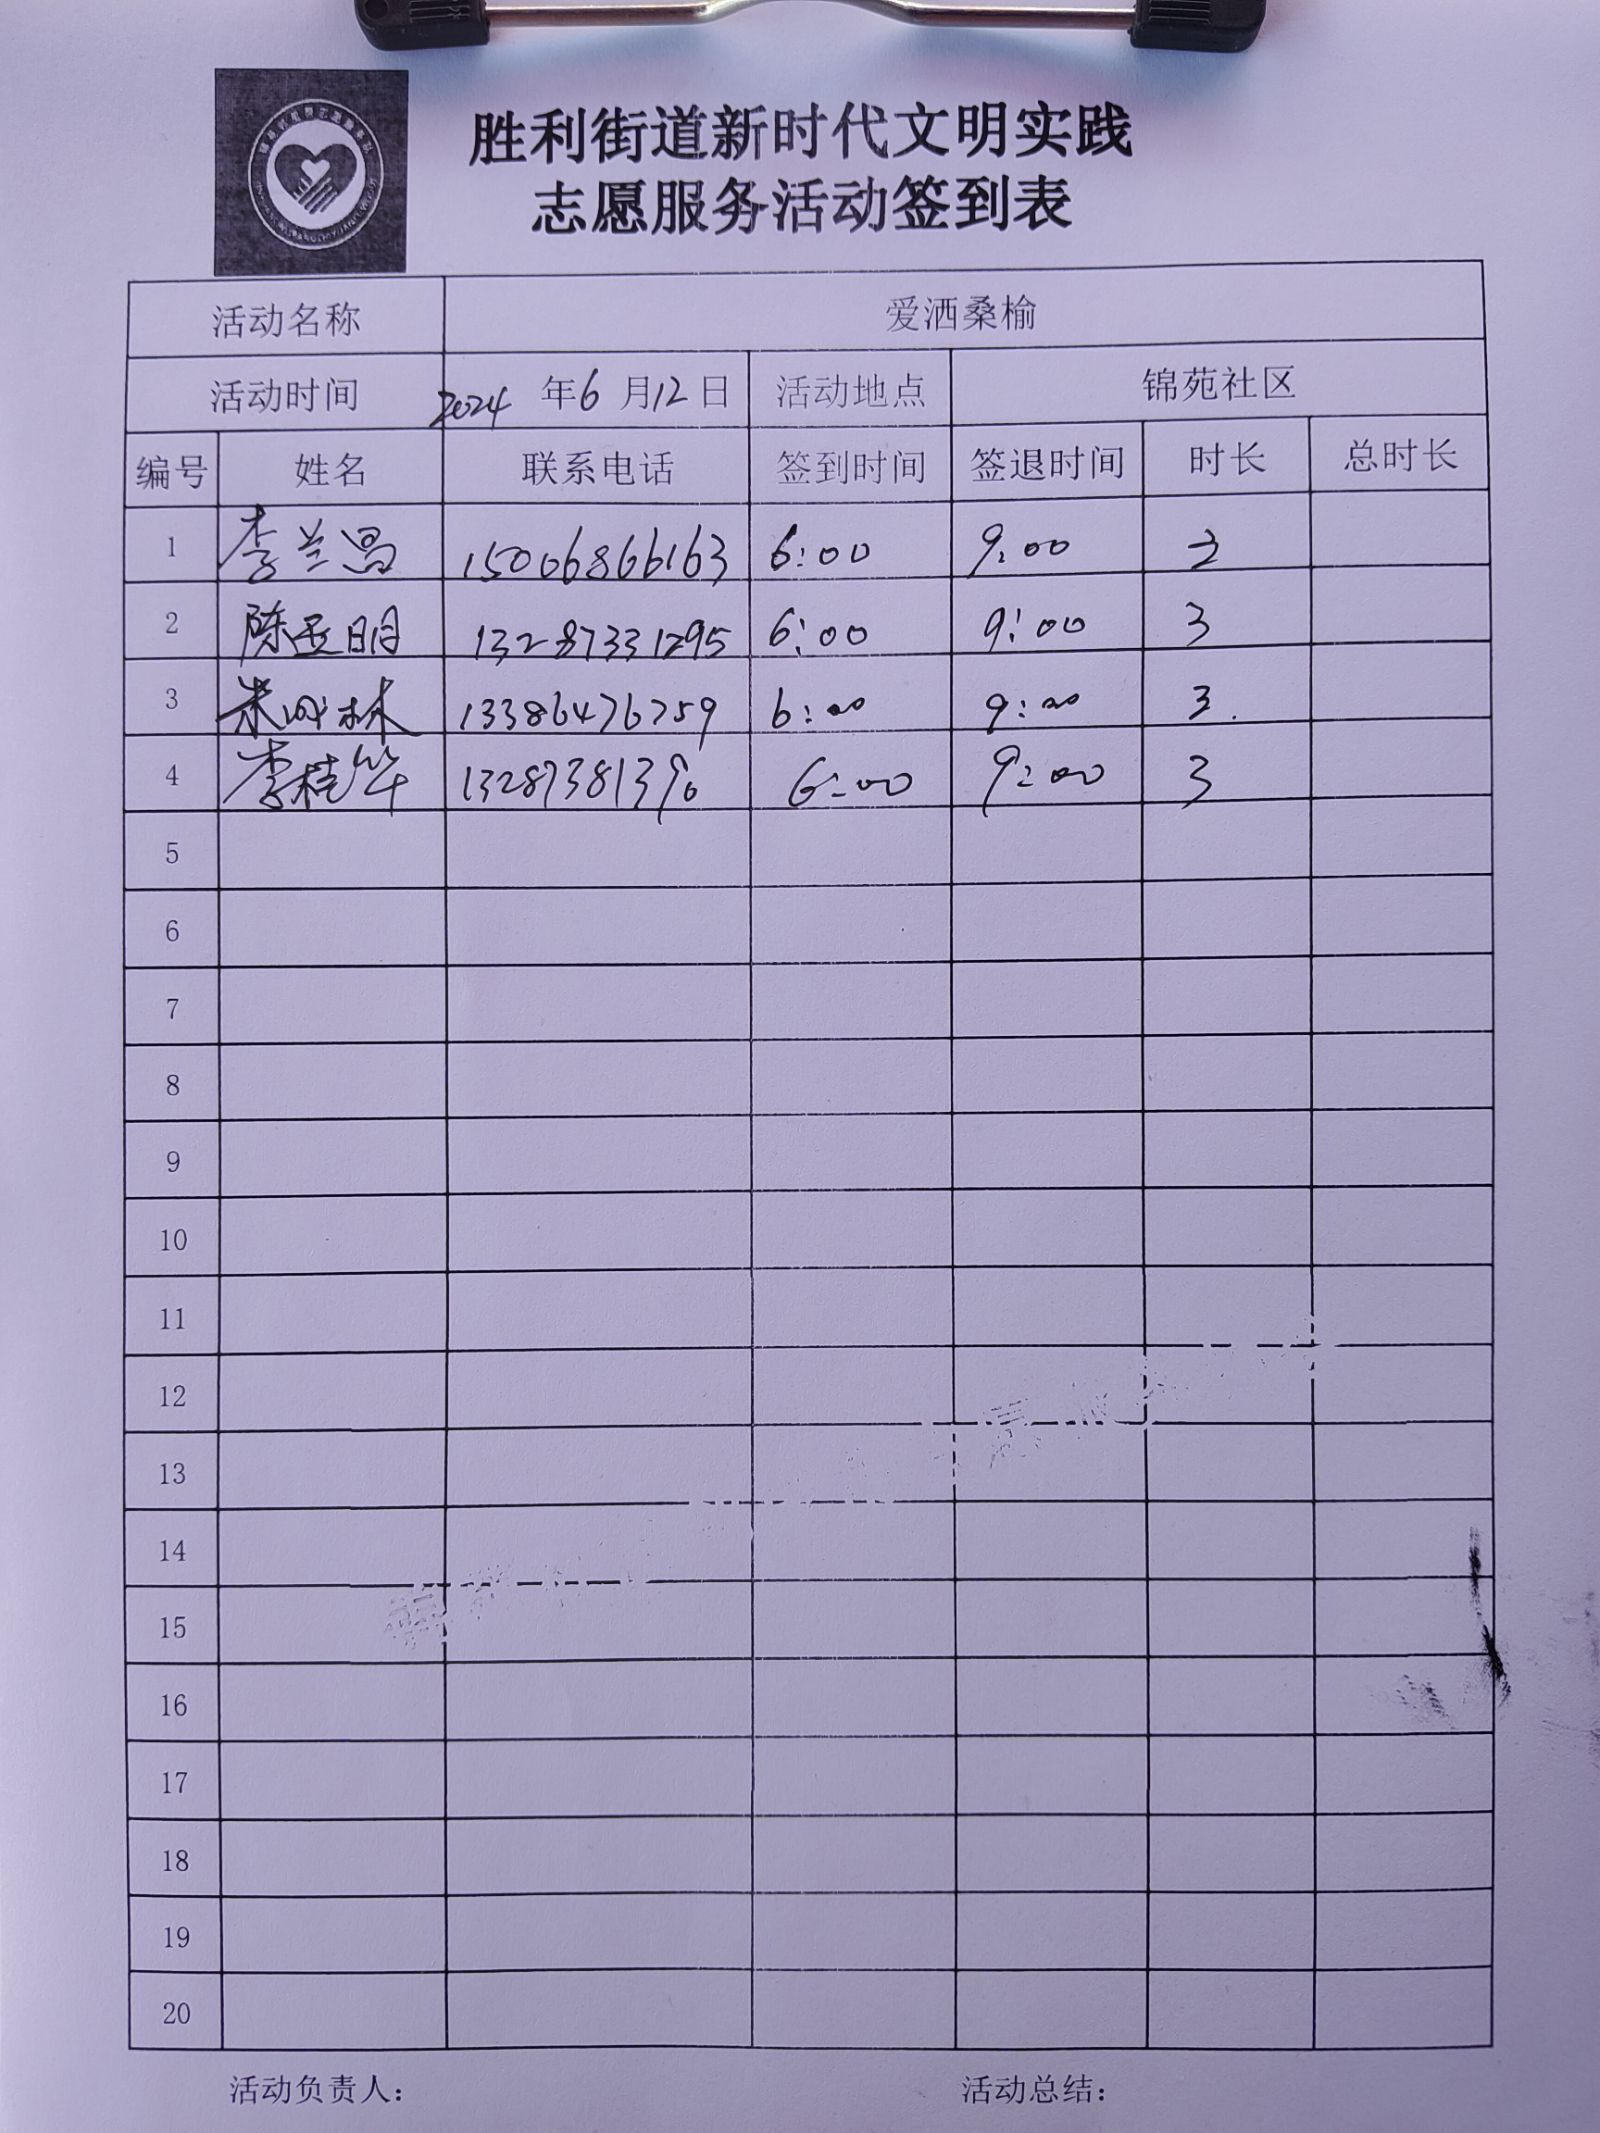 胜利街道新时代文明实践
志愿服务活动签到表
活动名称 爱洒桑榆
活动时间 2024年6月12日 活动地点 锦苑社区
编号 姓名 联系电话 签到时间 签退时间 时长 总时长
1 李兰昌 15006866163 6:00 9:00
2 陈亚明 13287331295 6:00 9:00 3
3 林 13386476759 6:00 9:00 3.
4 李桂华 1328738139 6:00 9:00 3
5
6
7
8
9
10
11
12
13
14
15
16
17
18
19
20
活动负责人： 活动总结：